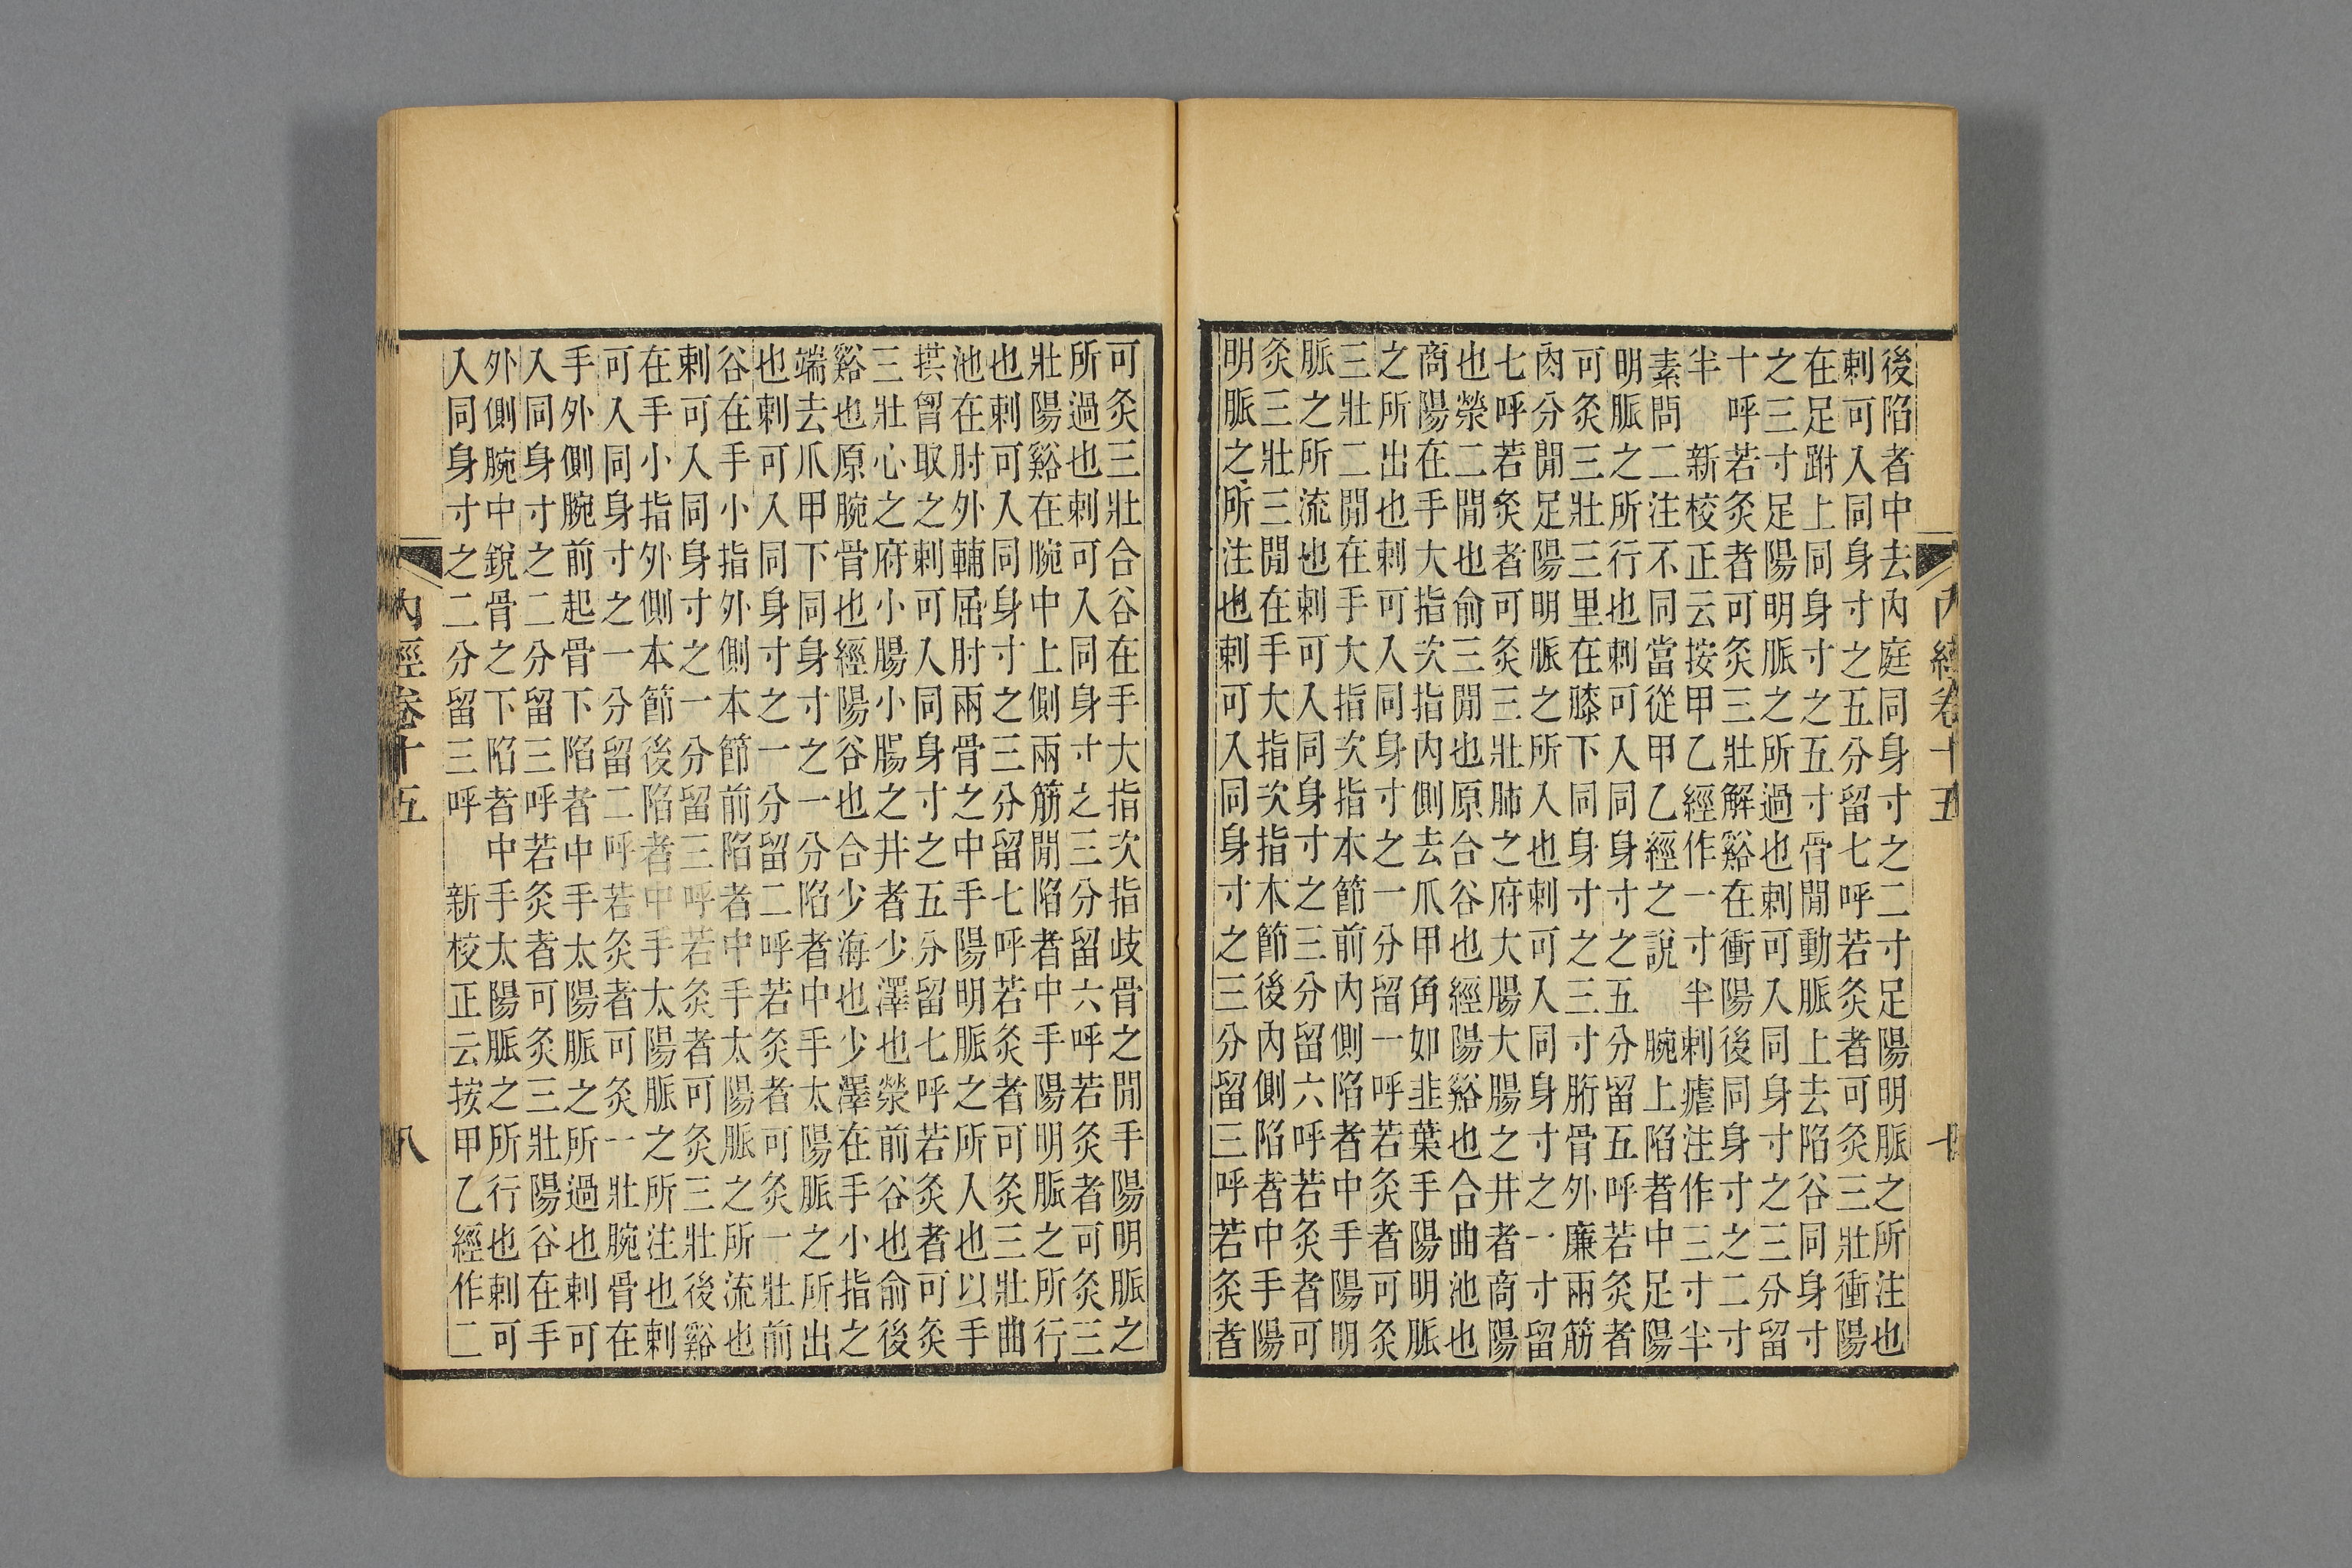 內經卷十五　十
後陷者中去內庭同身寸之二寸足陽明脈之所注也
刺可入同身寸之五分留七呼若灸者可灸三壯衝陽
在足跗上同身寸之五寸骨閒動脈上去陷谷同身寸
之三寸足陽明脈之所過也刺可入同身寸之三分留
十呼若灸者可灸三壯解谿在衝陽後同身寸之二寸
半　新校正云按甲乙經作一寸半刺瘧注作三寸半
素問二注不同當從甲乙經之說　腕上陷者中足陽
明脈之所行也刺可入同身寸之五分留五呼若灸者
可灸三壯三里在膝下同身寸之三寸胻骨外廉兩筋
肉分閒足陽明脈之所入也刺可入同身寸之一寸留
七呼若灸者可灸三壯肺之府大腸大腸之井者商陽
也滎二閒也俞三閒也原合谷也經陽谿也合曲池也
商陽在手大指次指內側去爪甲角如韭葉手陽明脈
之所出也刺可入同身寸之一分留一呼若灸者可灸
三壯二閒在手大指次指本節前內側陷者中手陽明
脈之所流也刺可入同身寸之三分留六呼若灸者可
灸三壯三閒在手大指次指本節後內側陷者中手陽
明脈之所注也刺可入同身寸之三分留三呼若灸者
可灸三壯合谷在手大指次指歧骨之閒手陽明脈之
所過也刺可入同身寸之三分留六呼若灸者可灸三
壯陽谿在腕中上側兩筋閒陷者中手陽明脈之所行
也刺可入同身寸之三分留七呼若灸者可灸三壯曲
池在肘外輔屈肘兩骨之中手陽明脈之所入也以手
拱胷取之刺可入同身寸之五分留七呼若灸者可灸
三壯心之府小腸小腸之井者少澤也滎前谷也俞後
谿也原腕骨也經陽谷也合少海也少澤在手小指之
端去爪甲下同身寸之一分陷者中手太陽脈之所出
也刺可入同身寸之一分留二呼若灸者可灸一壯前
谷在手小指外側本節前陷者中手太陽脈之所流也
刺可入同身寸之一分留三呼若灸者可灸三壯後谿
在手小指外側本節後陷者中手太陽脈之所注也刺
可入同身寸之一分留二呼若灸者可灸一壯腕骨在
手外側腕前起骨下陷者中手太陽脈之所過也刺可
入同身寸之二分留三呼若灸者可灸三壯陽谷在手
外側腕中銳骨之下陷者中手太陽脈之所行也刺可
入同身寸之二分留三呼　新校正云按甲乙經作二
內經卷十五　八